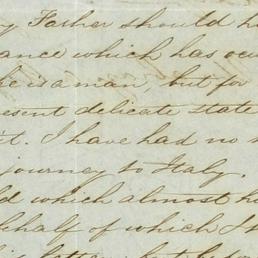 y Father should h
ance which has occ
he is a man, but for
esent delicate state
it. I have had no
journey to Italy,
ld which almost ha
behalf of which I s